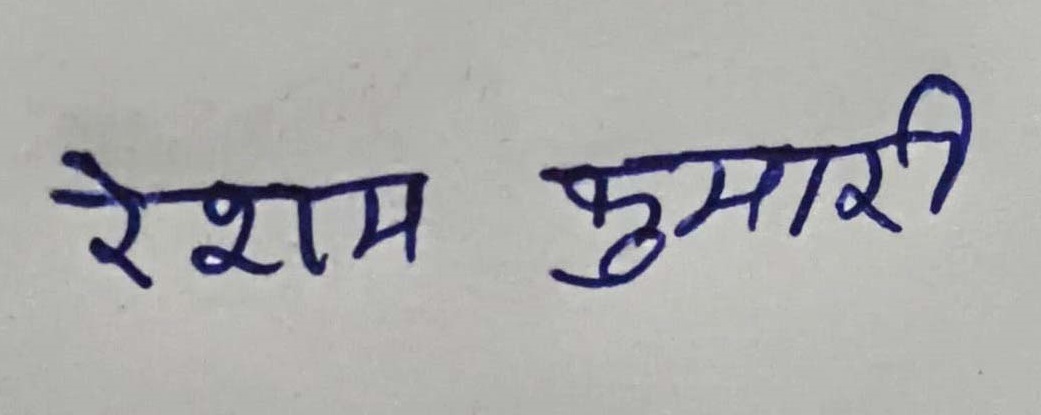 रेशम कुमारी